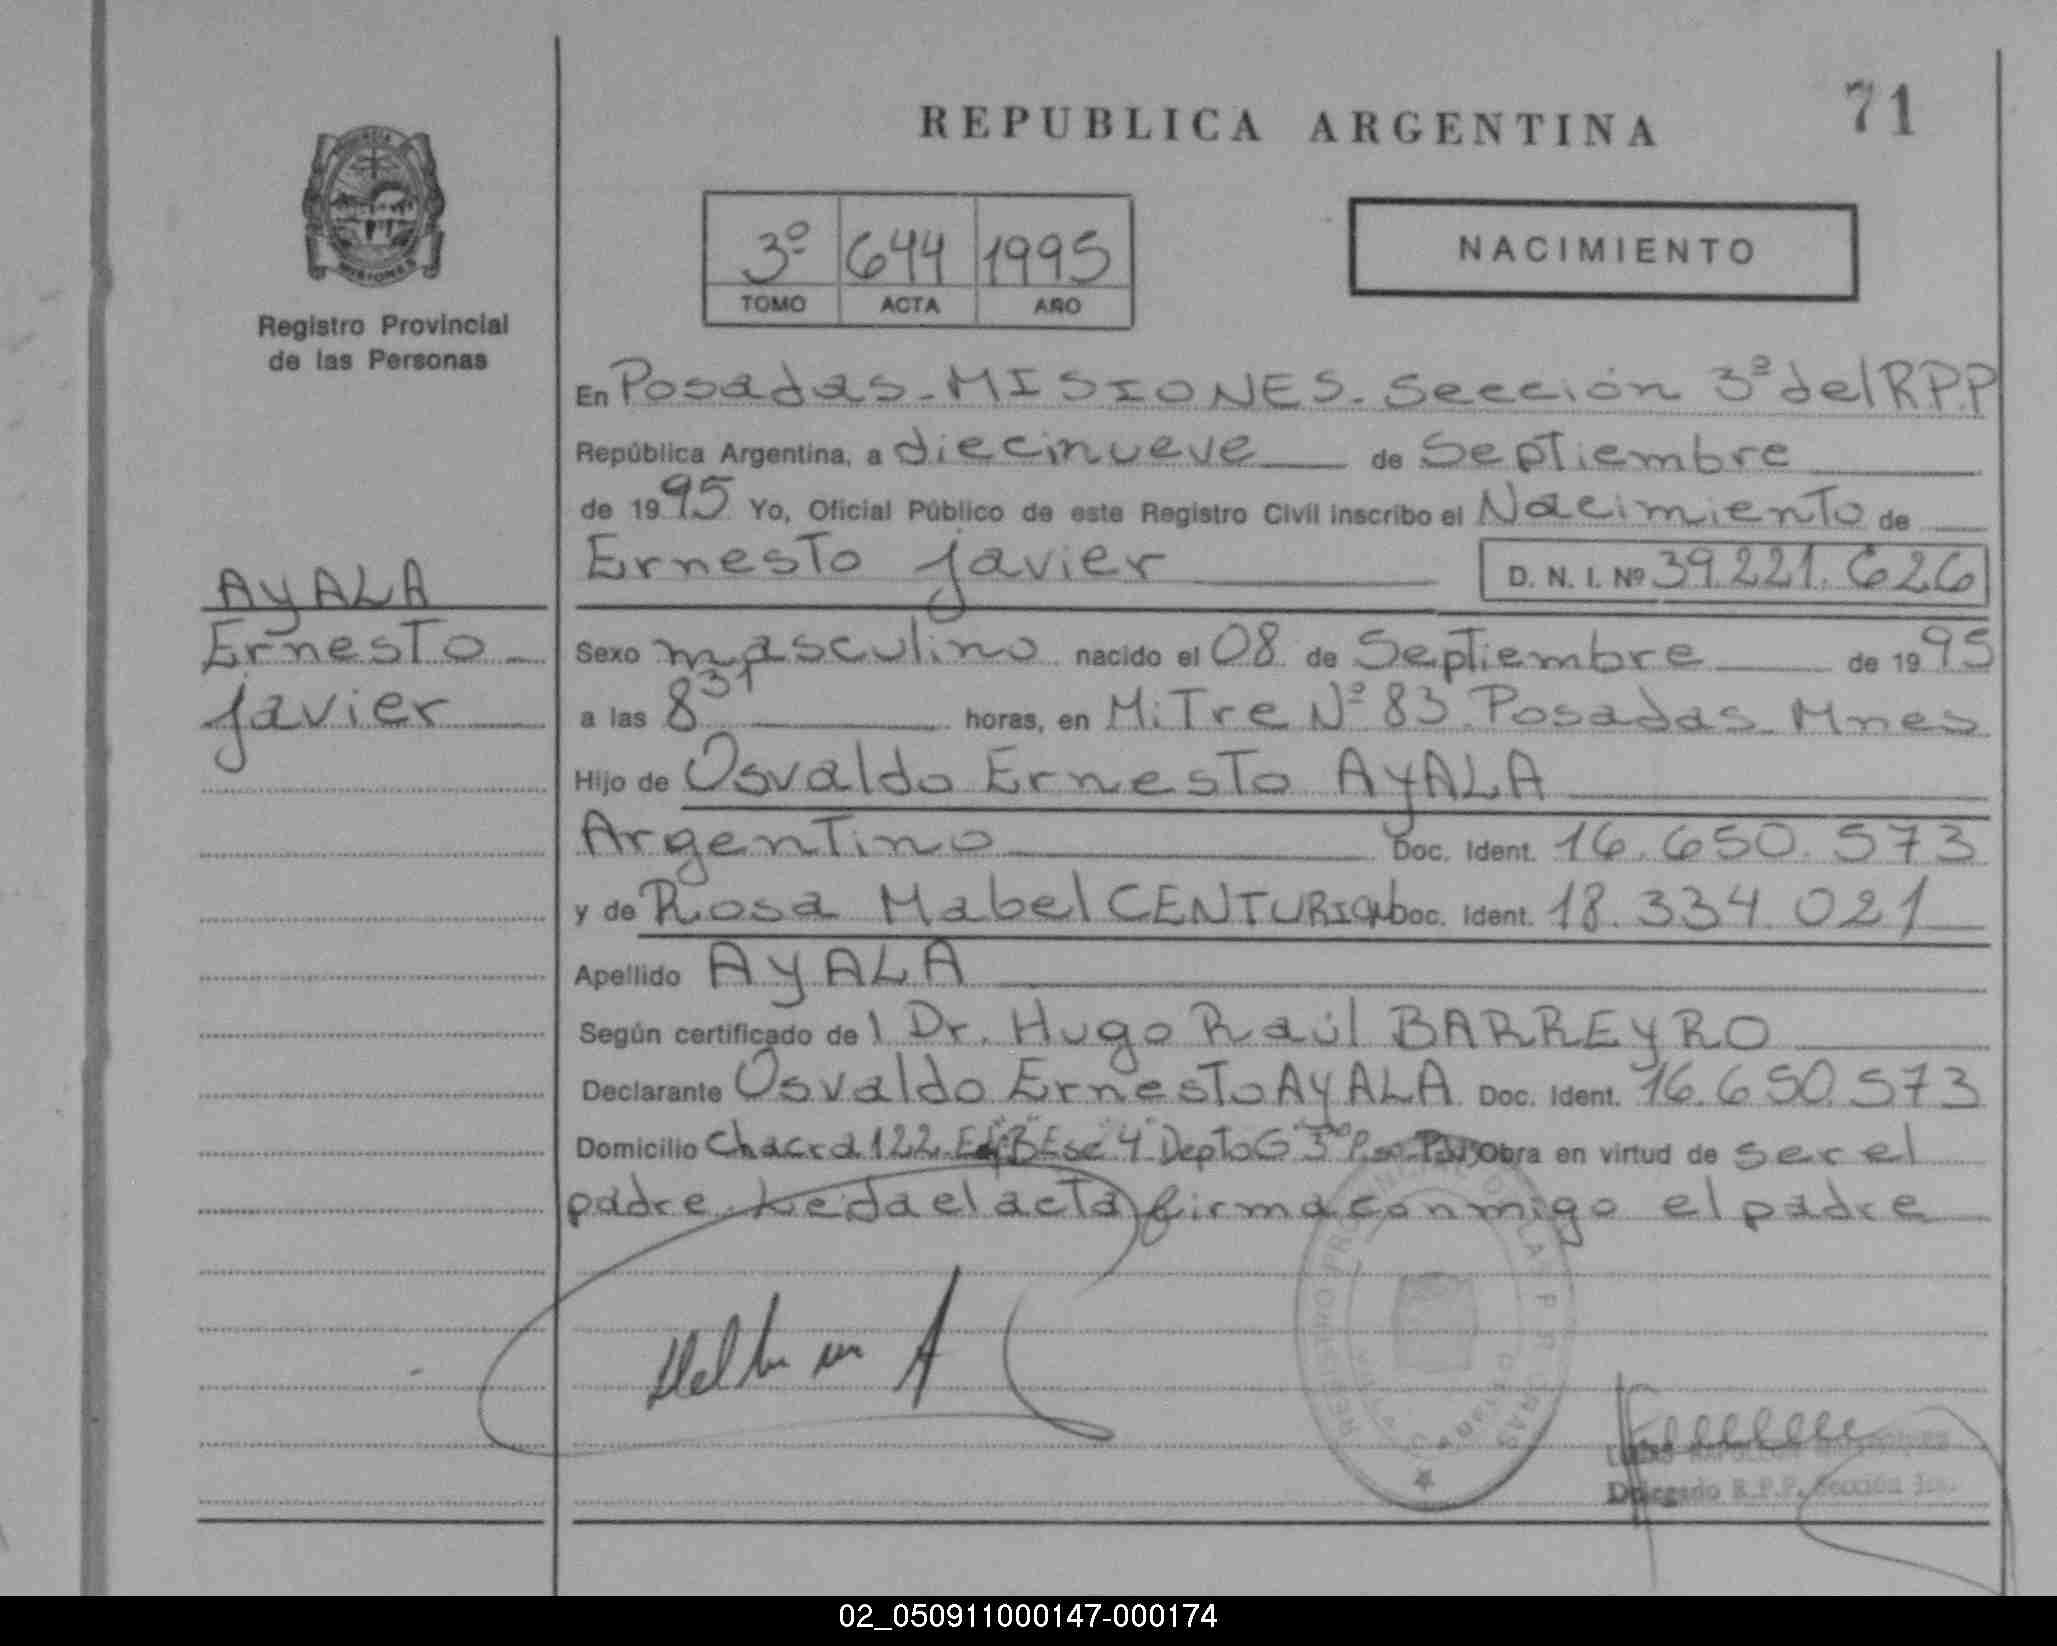 71
REPUBLICA ARGENTINA
PROVINCIA
MISIONES
Registro Provincial
de las Personas
3º 644 1995
TOMO ACTA AÑO
NACIMIENTO
En Posadas - MISIONES. Sección 3ª del R.P.P
República Argentina, a diecinueve de Septiembre
de 1995 Yo, Oficial Público de este Registro Civil inscribo el Nacimiento de
Ernesto Javier D. N. I. Nº 39.221.626
AYALA
Ernesto
Javier
Sexo masculino nacido el 08 de Septiembre de 1995
a las 8 31 horas, en Mitre Nº 83 Posadas Mnes
Hijo de Osvaldo Ernesto AYALA
Argentino Doc. Ident. 16.650.573
y de Rosa Mabel CENTURION Doc. Ident. 18.334.021
Apellido AYALA
Según certificado del Dr. Hugo Raúl BARREYRO
Declarante Osvaldo Ernesto AYALA Doc. Ident. 16.650.573
Domicilio Chacra 122 Edif B Esc 4 Depto G 3º Obra en virtud de ser el
padre. Leida el acta firma conmigo el padre
REGISTRO PROVINCIAL DE LAS PERSONAS
Delegado R.P.P. Sección
02_050911000147-000174